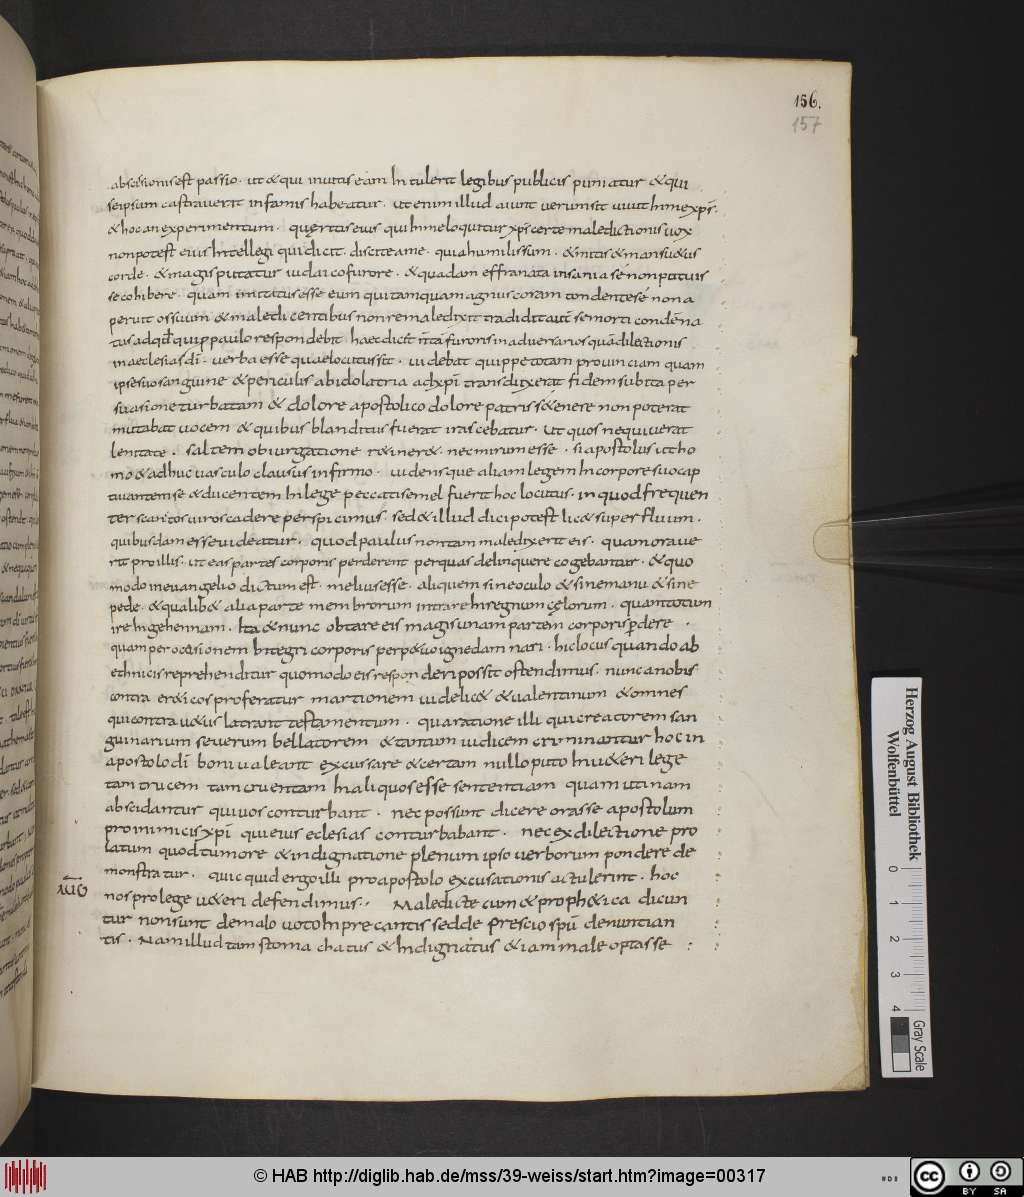 156.
157
abscisionis est passio · ut & qui inuitis eam Intulerit legibus publicis puniatur & qui
seipsum castrauerit infamis habeatur · ut enim illud aiunt uerum sit uiuit In me xp̄s
& hoc an experimentum · quęritis eius qui In me loquitur xp̄i certe maledictionis uox
non potest eius Intellegi qui dicit · discite a me · quia humilis sum · & mitis & mansu&us
corde · & magis putatur iudaico furore · & quadam effranata insania se non potuis
se cohibere · quam imitatus esse eum qui tamquam agnus coram tondente se non a
peruit os suum & maledicentibus non remaledixit tradidit aut̄ se morti condēna
tus ad qd̄ qui p paulo respondebit · haec dic& n̄ tā furoris in aduersarios quā dilectionis
in aeclesias dī · uerba esse quae locutus sit · uidebat quippe totam prouinciam quam
ipse suo sanguine & periculis ab idolatria ad xp̄i transduxerat fidem subita per
suasione turbatam & dolore apostolico dolore patris se tenere non poterat
mutabat uocem & quibus blanditus fuerat irascebatur · ut quos nequiuerat
lenitate · saltem obiurgatione r&iner& · nec mirum esse · si apostolus ut ho
mo & adhuc uasculo clausus infirmo · uidensque aliam legem In corpore suo cap
tiuantem se & ducentem In lege peccati semel fuerit hoc locutus · in quod frequen
ter scā̄ntos uiros cadere perspicimus · sed & illud dici potest lic& superfluum ·
quibusdam esse uideatur · quod paulus non tam maledixerit eis · quam oraue
rit pro illis · ut eas partes corporis perderent per quas delinquere cogebantur · & quo
modo in euangelio dictum est · melius esse · aliquem sine oculo & sine manu & sine
pede · & qualib& alia parte membrorum intrare In regnum cęlorum · quam totum
ire In gehennam · Ita & nunc obtare eis magis unam partem corporis p̄dere ·
quam per occasionem Integri corporis perp&uo igne damnari · hic locus quando ab
ethnicis reprehenditur quomodo eis responderi possit ostendimus · nunc a nobis
contra er&icos proferatur martionem uidelic& & ualentinum & omnes
qui contra u&us latrant testamentum · qua ratione illi qui creatorem san
guinarium seuerum bellatorem & tantum iudicem criminantur hoc in
apostolo dī boni ualeant excussare & certem nullo puto In u&eri lege
tam trucem tam cruentam In aliquos esse sententiam quam utinam
abscidantur qui uos conturbant · nec possunt dicere orasse apostolum
pro inimicis xp̄i qui eius eclesias conturbabant · nec ex dilectione pro
latum quod tumore & indignatione plenum ipso uerborum pondere de
monstratur · quicquid ergo illi pro apostolo excusationis attulerint · hoc
nos pro lege u&eri defendimus · Maledicte cum & proph&ica dicun
tur non sunt de malo uoto Inprecantis sed de prescio spū denuntian
tis · Nam illud tam stomachatus & Indignatus & iam male optasse
AUG
© HAB http://diglib.hab.de/mss/39-weiss/start.htm?image=00317
Herzog August Bibliothek
Wolfenbüttel
0
1
2
3
4
Gray Scale
cc
BY SA